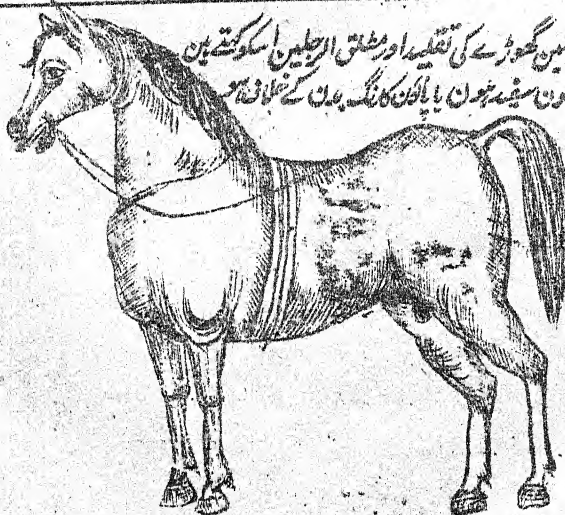 مین گھوڑے کی تقلید اور مطلق الرجلین اسکو کہتے ہین
ون سفید ہون یا پاؤن کا رنگ بدن کے خلاف ہو